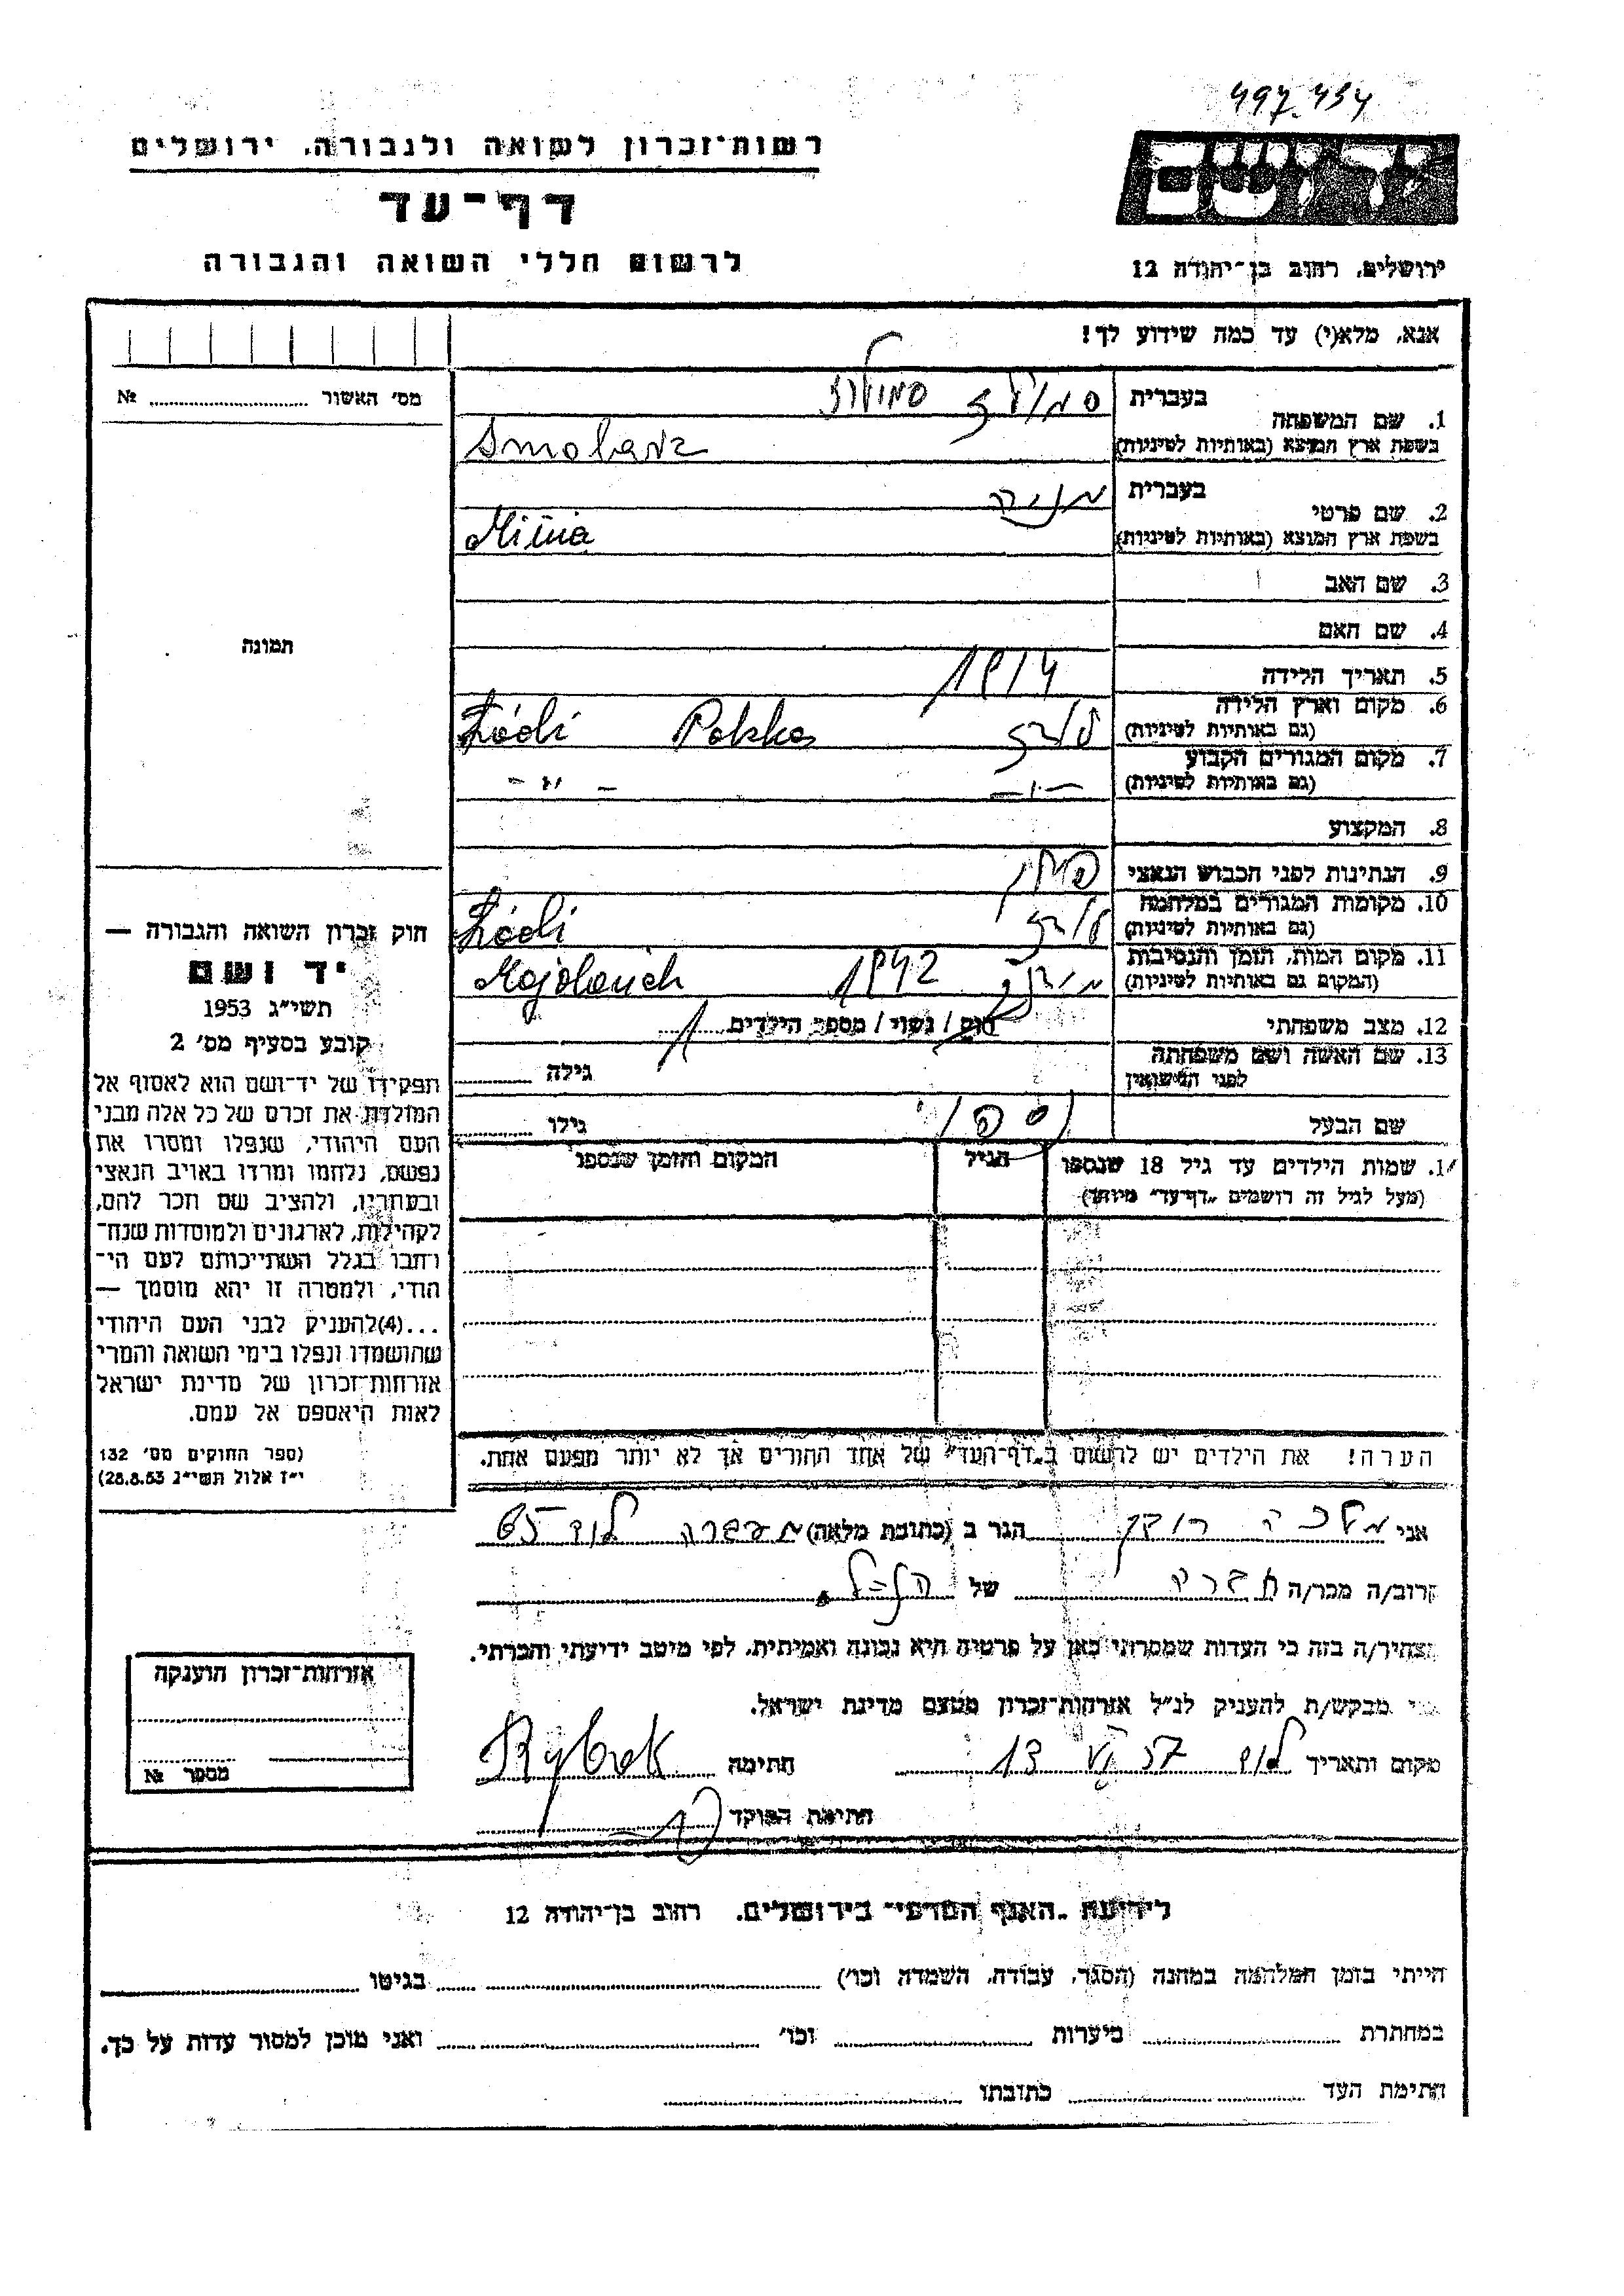 497.434
רשות־זכרון לשואה ולגבורה, ירושלים
דף־עד
לרשום חללי השואה והגבורה
יד ושם
ירושלים, רחוב בן־יהודה 12
אנא, מלא(י) עד כמה שידוע לך!
מס׳ האשור № 
1. שם המשפחה
בעברית סמולרז
בשפת ארץ המוצא (באותיות לטיניות) Smolarz
2. שם פרטי
בעברית מניה
בשפת ארץ המוצא (באותיות לטיניות)
3. שם האב
4. שם האם
5. תאריך הלידה 1914
6. מקום וארץ הלידה
(גם באותיות לטיניות) לודז Polska Łódź
7. מקום המגורים הקבוע
(גם באותיות לטיניות) -"- -"-
8. המקצוע
9. הנתינות לפני הכבוש הנאצי
10. מקומות המגורים במלחמה
(גם באותיות לטיניות) לודז Łódź
11. מקום המות, הזמן והנסיבות
(המקום גם באותיות לטיניות) 1942
12. מצב משפחתי רווק / נשוי / מספר הילדים 1
13. שם האשה ושם משפחתה
לפני הנישואין
גילה
שם הבעל
גילו
שמות הילדים עד גיל 18 שנספו
(מעל לגיל זה רושמים „דף־עד” מיוחד)
הגיל
המקום והזמן שנספו
הערה! את הילדים יש לרשום ב„דף־העד” של אחד ההורים אך לא יותר מפעם אחת.
תמונה
חוק זכרון השואה והגבורה —
יד ושם
תשי״ג 1953
קובע בסעיף מס׳ 2
תפקידו של יד־ושם הוא לאסוף אל
המולדת את זכרם של כל אלה מבני
העם היהודי, שנפלו ומסרו את
נפשם, נלחמו ומרדו באויב הנאצי
ובעוזריו, ולהציב שם וזכר להם,
לקהילות, לארגונים ולמוסדות שנח־
רבו בגלל השתייכותם לעם הי־
הודי, ולמטרה זו יהא מוסמך —
...(4)להעניק לבני העם היהודי
שהושמדו ונפלו בימי השואה והמרי
אזרחות־זכרון של מדינת ישראל
לאות היאספם אל עמם.
(ספר החוקים מס׳ 132
י״ז אלול תשי״ג 28.8.53)
אני הגר ב (כתובת מלאה) מעברה לוד 65
קרוב/ה מכר/ה חברה של הנ״ל
מצהיר/ה בזה כי העדות שמסרתי כאן על פרטיה היא נכונה ואמיתית, לפי מיטב ידיעתי והכרתי.
אני מבקש/ת להעניק לנ״ל אזרחות־זכרון מטעם מדינת ישראל.
מקום ותאריך לוד 13 57 חתימה Rybak
חתימת הפוקד
אזרחות־זכרון הוענקה
מספר №
לידיעת „האגף המדעי” בירושלים, רחוב בן־יהודה 12
הייתי בזמן המלחמה במחנה (הסגר, עבודה, השמדה וכו׳) בגיטו
במחתרת ביערות וכו׳ ואני מוכן למסור עדות על כך.
חתימת העד כתובתו